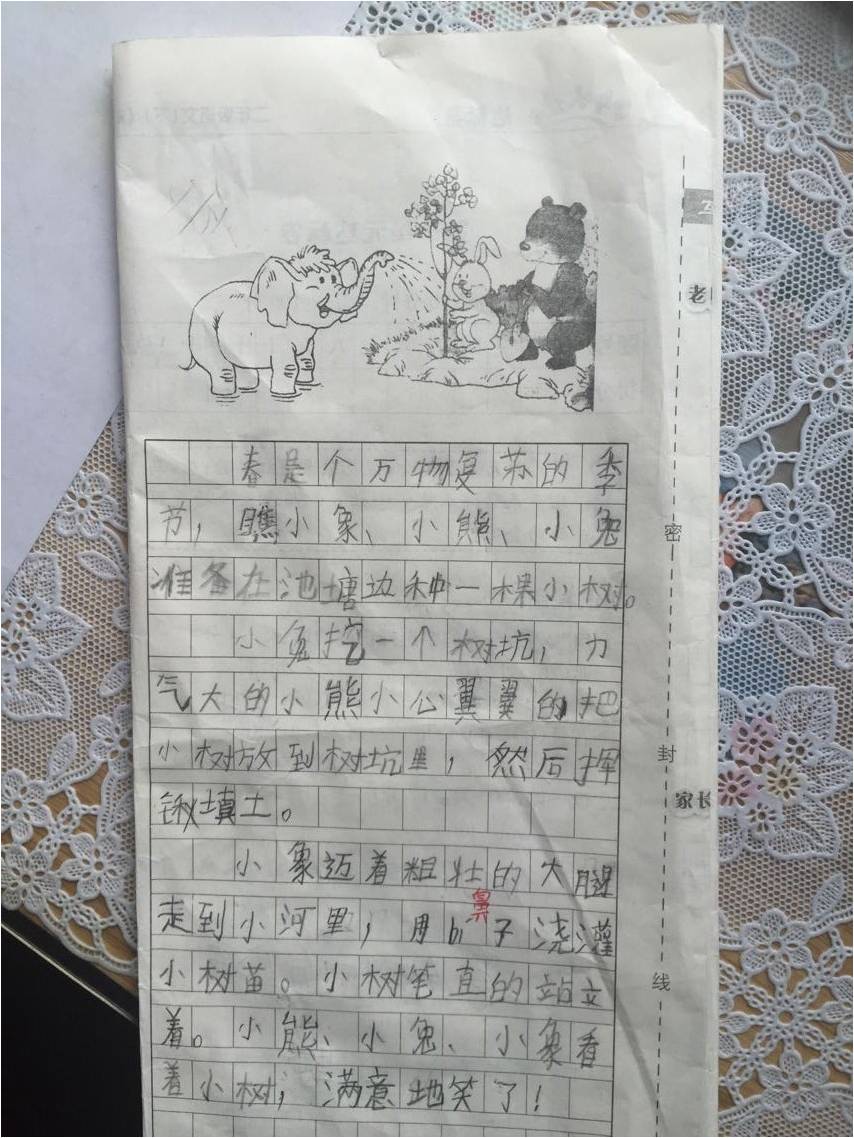 春是个万物复苏的季
节，瞧小象、小熊、小兔
准备在池塘边种一棵小树。
小兔挖一个树坑，力
气大的小熊小心翼翼的把
小树放到树坑里，然后挥
锹填土。
小象迈着粗壮的大腿
鼻
走到小河里，用bí子浇灌
小树苗。小树笔直的站立
着。小熊、小兔、小象看
着小树，满意地笑了！
密
封
线
老
家长